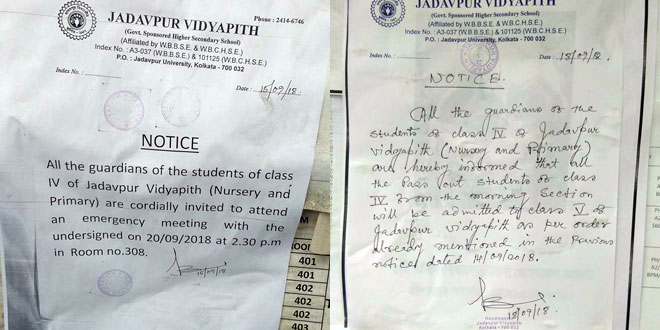 JADAVPUR VIDYAPITH
Phone : 2414-6746
(Govt. Sponsored Higher Secondary School)
(Affiliated by W.B.B.S.E. & W.B.C.H.S.E.)
Index No. : A3-037 (W.B.B.S.E.) & 101125 (W.B.C.H.S.E.)
P.O. : Jadavpur University, Kolkata - 700 032
Index No.
Date : 15/09/18
NOTICE
All the guardians of the students of class
IV of Jadavpur Vidyapith (Nursery and
Primary) are cordially invited to attend
an emergency meeting with the
undersigned on 20/09/2018 at 2.30 p.m
in Room no.308.
15/09/18
401
401
402
402
403
JADAVPUR VIDYAPITH
(Govt. Sponsored Higher Secondary School)
(Affiliated by W.B.B.S.E. & W.B.C.H.S.E.)
Index No. : A3-037 (W.B.B.S.E.) & 101125 (W.B.C.H.S.E.)
P.O. : Jadavpur University, Kolkata - 700 032
Index No.
Date : 18/09/18
NOTICE
All the guardians of the
students of class IV of Jadavpur
Vidyapith (Nursery and Primary)
are hereby informed that all
the Pass out students of class
IV from the morning Section
will be admitted to class V of
Jadavpur Vidyapith as per order
already mentioned in the Previous
notice dated 14/09/2018.
18/09/18.
Headmaster
Jadavpur Vidyapith
Kolkata - 700 032